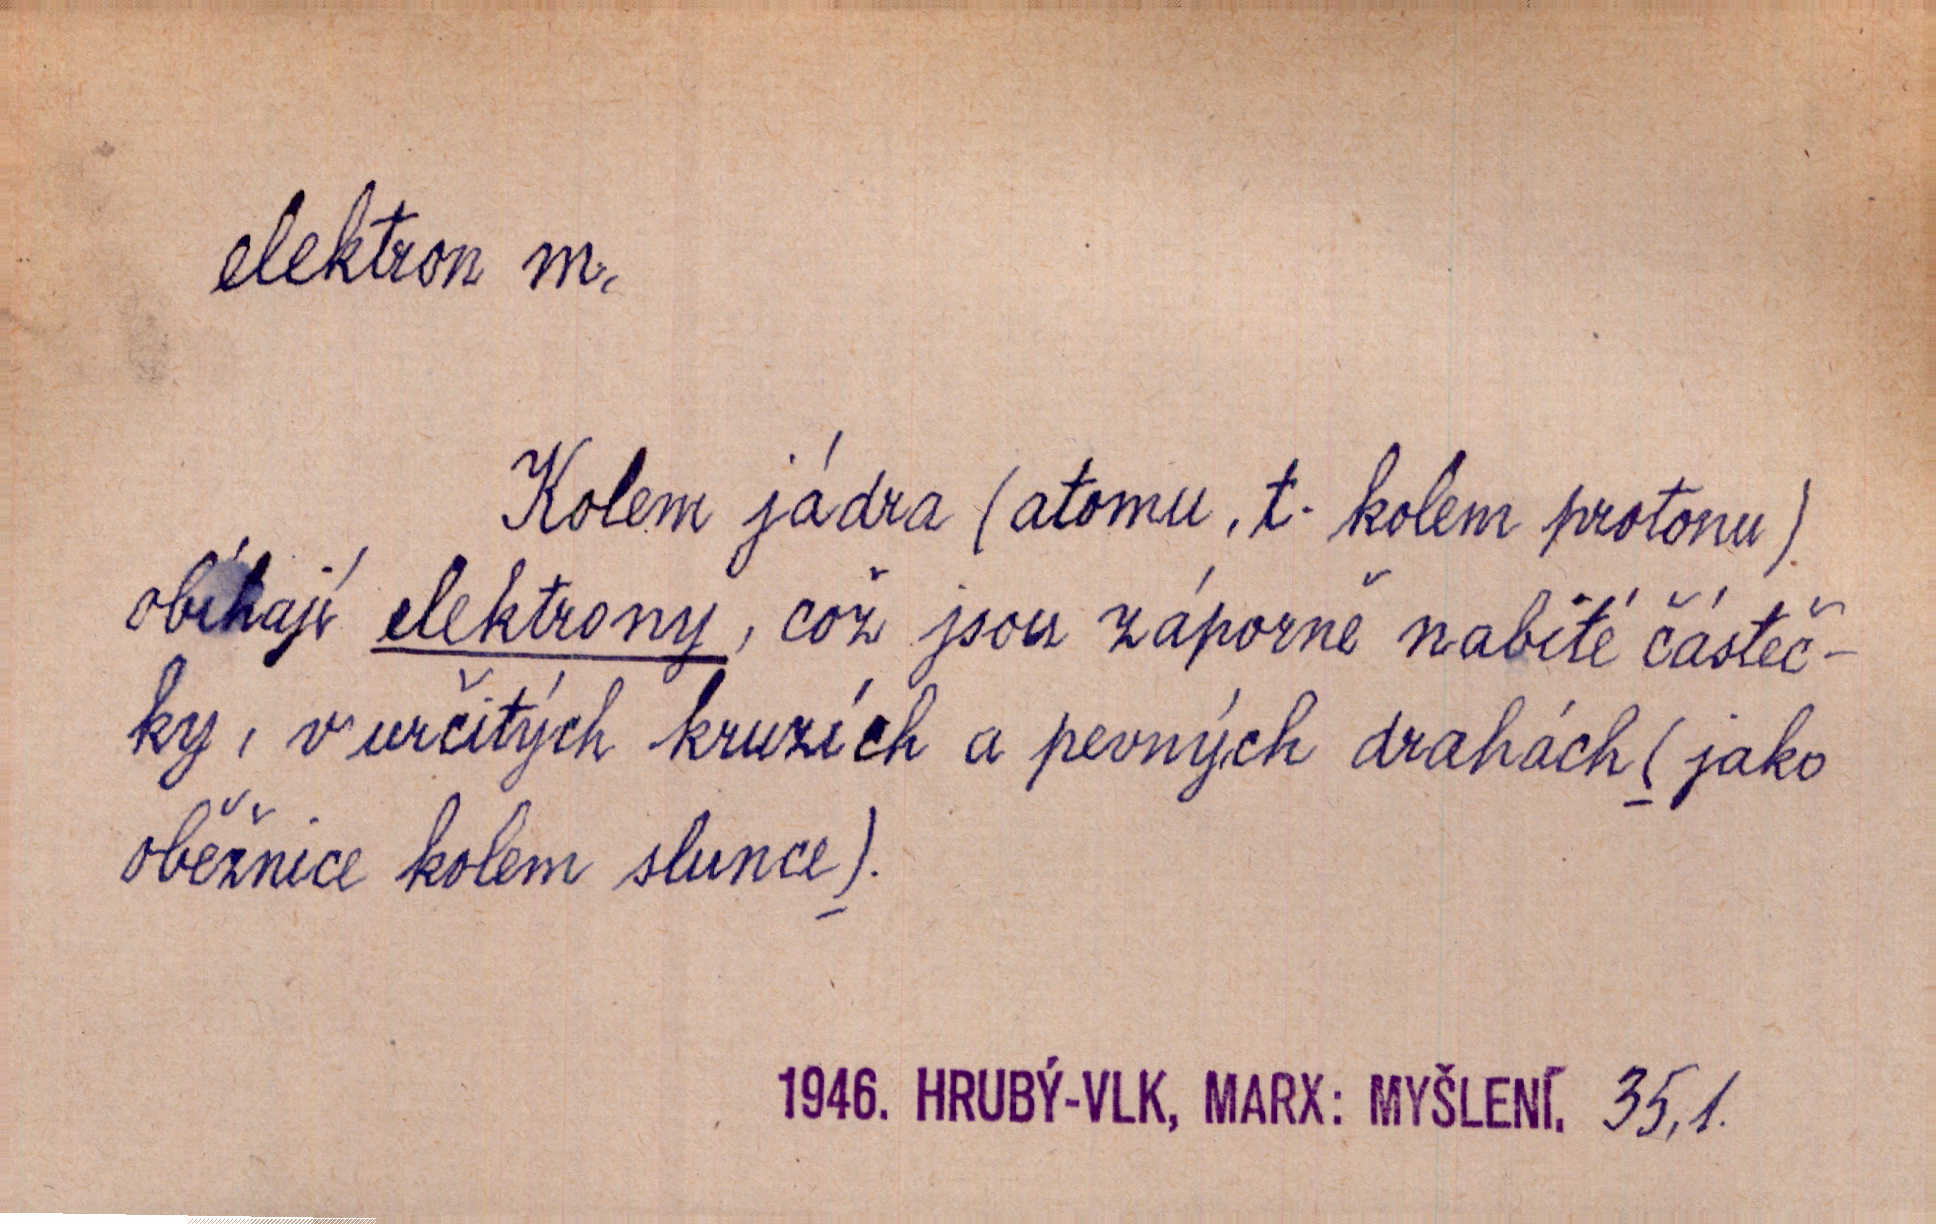 elektron m.
Kolem jádra (atomu, t. kolem protonu)
obíhají elektrony, což jsou záporně nabité částeč-
ky, v určitých kruzích a pevných drahách (jako
oběžnice kolem slunce).
1946. HRUBÝ-VLK, MARX: MYŠLENÍ. 35,1.